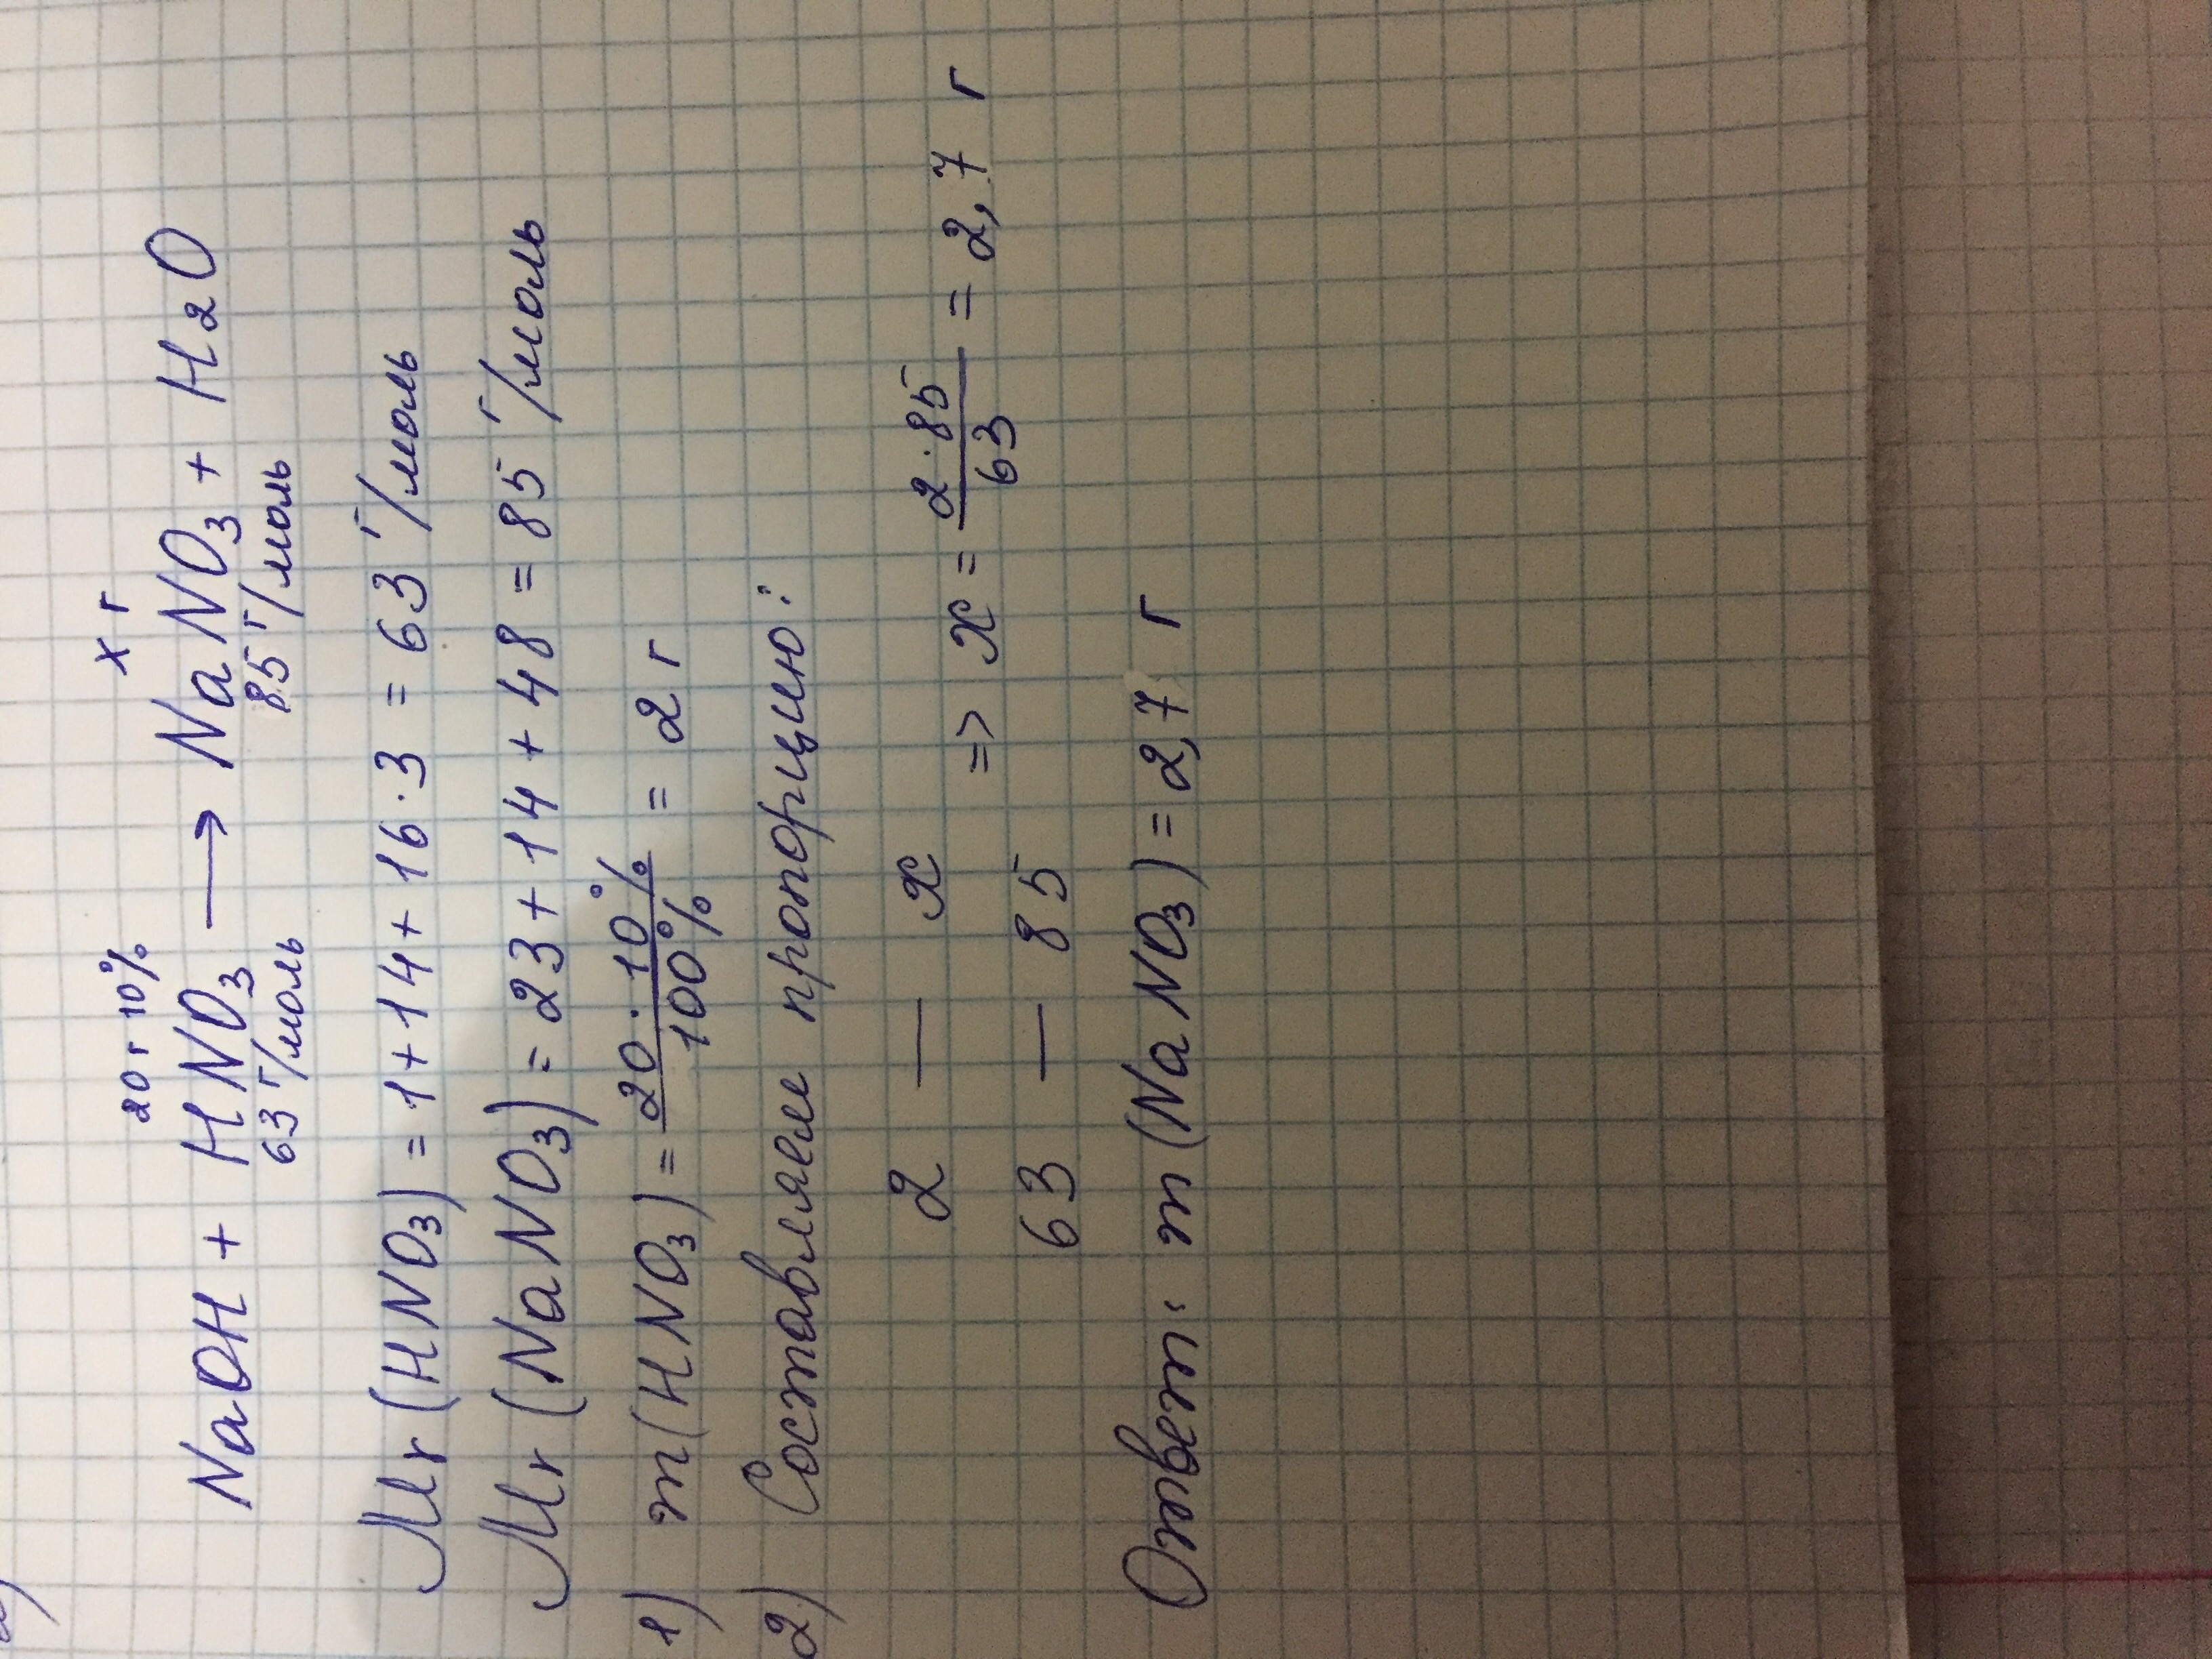 20 г 10% х г
NaOH + HNO₃ → NaNO₃ + H₂O
63 г/моль 85 г/моль
Mr (HNO₃) = 1 + 14 + 16 · 3 = 63 г/моль
Mr (NaNO₃) = 23 + 14 + 48 = 85 г/моль
1) m(HNO₃) = 20 · 10% / 100% = 2 г
2) Составляем пропорцию:
2 — x
63 — 85 => x = 2 · 85 / 63 = 2,7 г
Ответ: m (NaNO₃) = 2,7 г